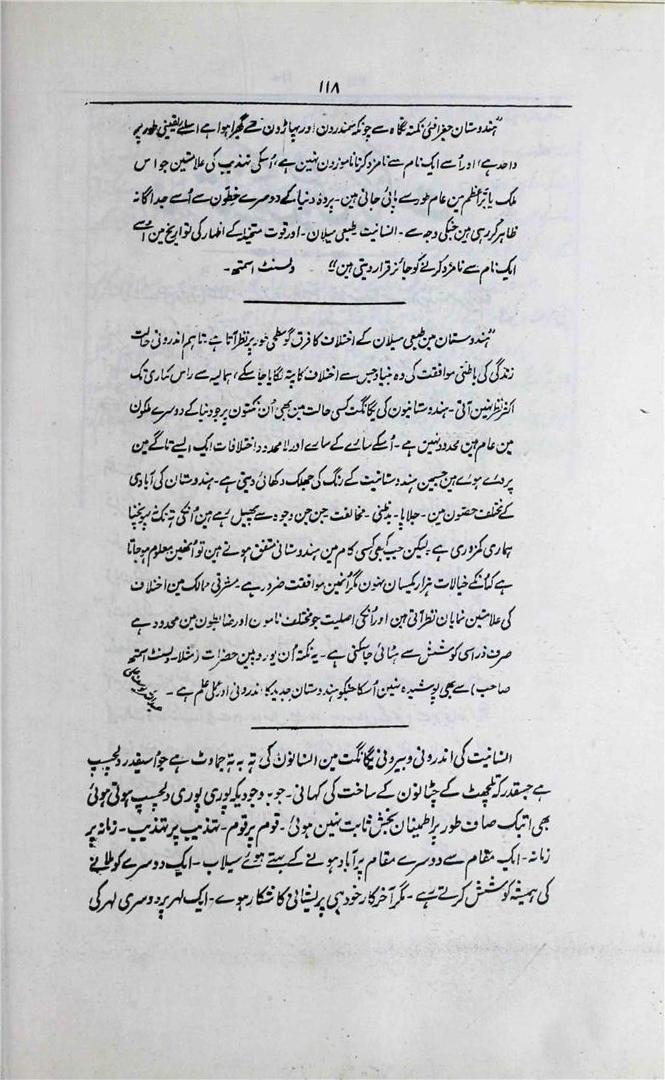 ۱۱۸
"ہندوستان جغرافئی نکتہ نگاہ سے چونکہ سمندرون اور پہاڑون سے گھرا ہوا ہے اسلئے یقینی طور پر
واحد ہے، اور اُسے ایک نام سے نامزد کرنا ناموزون نہین ہے، اُسکی تہذیب کی علامتین جو اس
ملک یا بّر اعظم مین عام طور سے پائی جاتی ہین۔ پردۂ دنیا کے دوسرے خطّون سے اُسے جداگانہ
ظاہر کر رہی ہین جنکی وجہ سے۔ انسانیت۔ طبعی میلان۔ اور قوت متخیلہ کے اظہار کی تواریخ مین اُسے
ایک نام سے نامزد کرنے کو جائز قرار دیتی ہین"۔ ونسنٹ اسمتھ۔
"ہندوستان مین طبعی میلان کے اختلاف کا فرق گو سطحی طور پر نظر آتا ہے، تاہم اندرونی حالت
زندگی کی باطنی موافقت کی وہ بنیاد جس سے اختلاف کا پتہ لگایا جا سکے، ہمالیہ سے راس کماری تک
اکثر نظر نہین آتی۔ ہندوستانیون کی یگانگت کسی حالت مین بھی اُن نکتون پر جو دنیا کے دوسرے ملکون
مین عام ہین محدود نہین ہے۔ اُسکے سارے کے سارے اور لامحدود اختلافات ایک ایسے تاگے مین
پروئے ہوئے ہین جسمین ہندوستانیت کے رنگ کی جھلک دکھائی دیتی ہے۔ ہندوستان کی آبادی
کے مختلف حصّون مین۔ جلاپا۔ بدظنی۔ مخالفت جن جن وجوہ سے پھیل رہے ہین اُنکی تہ تک نہ پہنچنا
ہماری کمزوری ہے لیکن جب کبھی کسی کام مین ہندوستانی متفق ہوتے ہین تو اُنھین معلوم ہو جاتا
ہے کہ اُنکے خیالات ہزار یکسان نہون مگر اُنمین موافقت ضرور ہے۔ مشرقی ممالک مین اختلاف
کی علامتین نمایان نظر آتی ہین اور اُنکی اصلیت جو مختلف نامون اور ضابطون مین محدود ہے
صرف ذراسی کوشش سے ہٹائی جا سکتی ہے۔ یہ نکتہ اُن یوروپین حضرات (مثلاً۔ ونسنٹ اسمتھ
صاحب) سے بھی پوشیدہ نہین اُسکا جنکو ہندوستان جدید کا اندرونی اور عملی علم ہے۔
انسانیت کی اندرونی و بیرونی یگانگت مین انسانون کی تہ بہ تہ جماوٹ ہے جو اُسیقدر دلچسپ
ہے جسقدر کہ تلچھٹ کے چٹانون کے ساخت کی کہانی۔ جو باوجودیکہ پوری پوری دلچسپ ہوتی ہوئی
بھی اتبک صاف طور پر اطمینان بخش ثابت نہین ہوئی۔ قوم پر قوم۔ تہذیب پر تہذیب۔ زمانہ پر
زمانہ۔ ایک مقام سے دوسرے مقام پر آباد ہونے کے بہتے ہوئے سیلاب۔ ایک دوسرے کو ملانے
کی ہمیشہ کوشش کرتے رہے۔ مگر آخرکار خود ہی پریشانی کا شکار ہوے۔ ایک لہر پر دوسری لہر کی